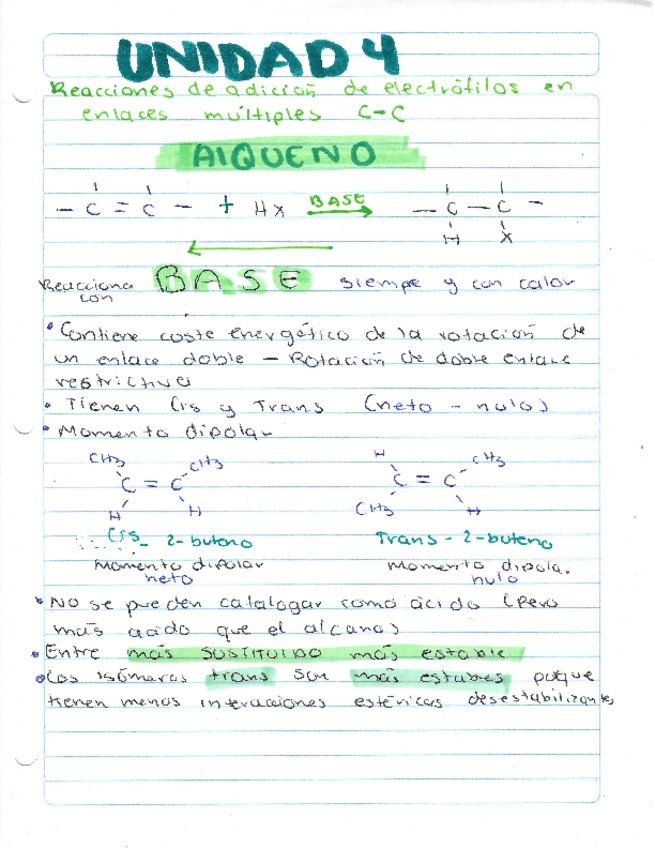 UNIDAD 4
Reacciones de adición de electrófilos en
enlaces múltiples C-C
AlQUENO
- C = C - + HX BASE - C - C -
H X
Reacciona con BASE siempre y con calor
• Contiene coste energético de la rotación de
un enlace doble - Rotación de doble enlace
restrictiva
• Tienen Cis y Trans (neto - nulo)
• Momento dipolar
CH3 CH3 H CH3
C = C C = C
H H CH3 H
Cis_ 2-buteno Trans - 2-buteno
Momento dipolar Momento dipola.
neto nulo
• No se pueden catalogar como ácido (pero
más acido que el alcano)
• Entre más SUSTITUIDO más estable
• Los isómeros trans son más estables poque
tienen menos interacciones estéricas desestabilizantes